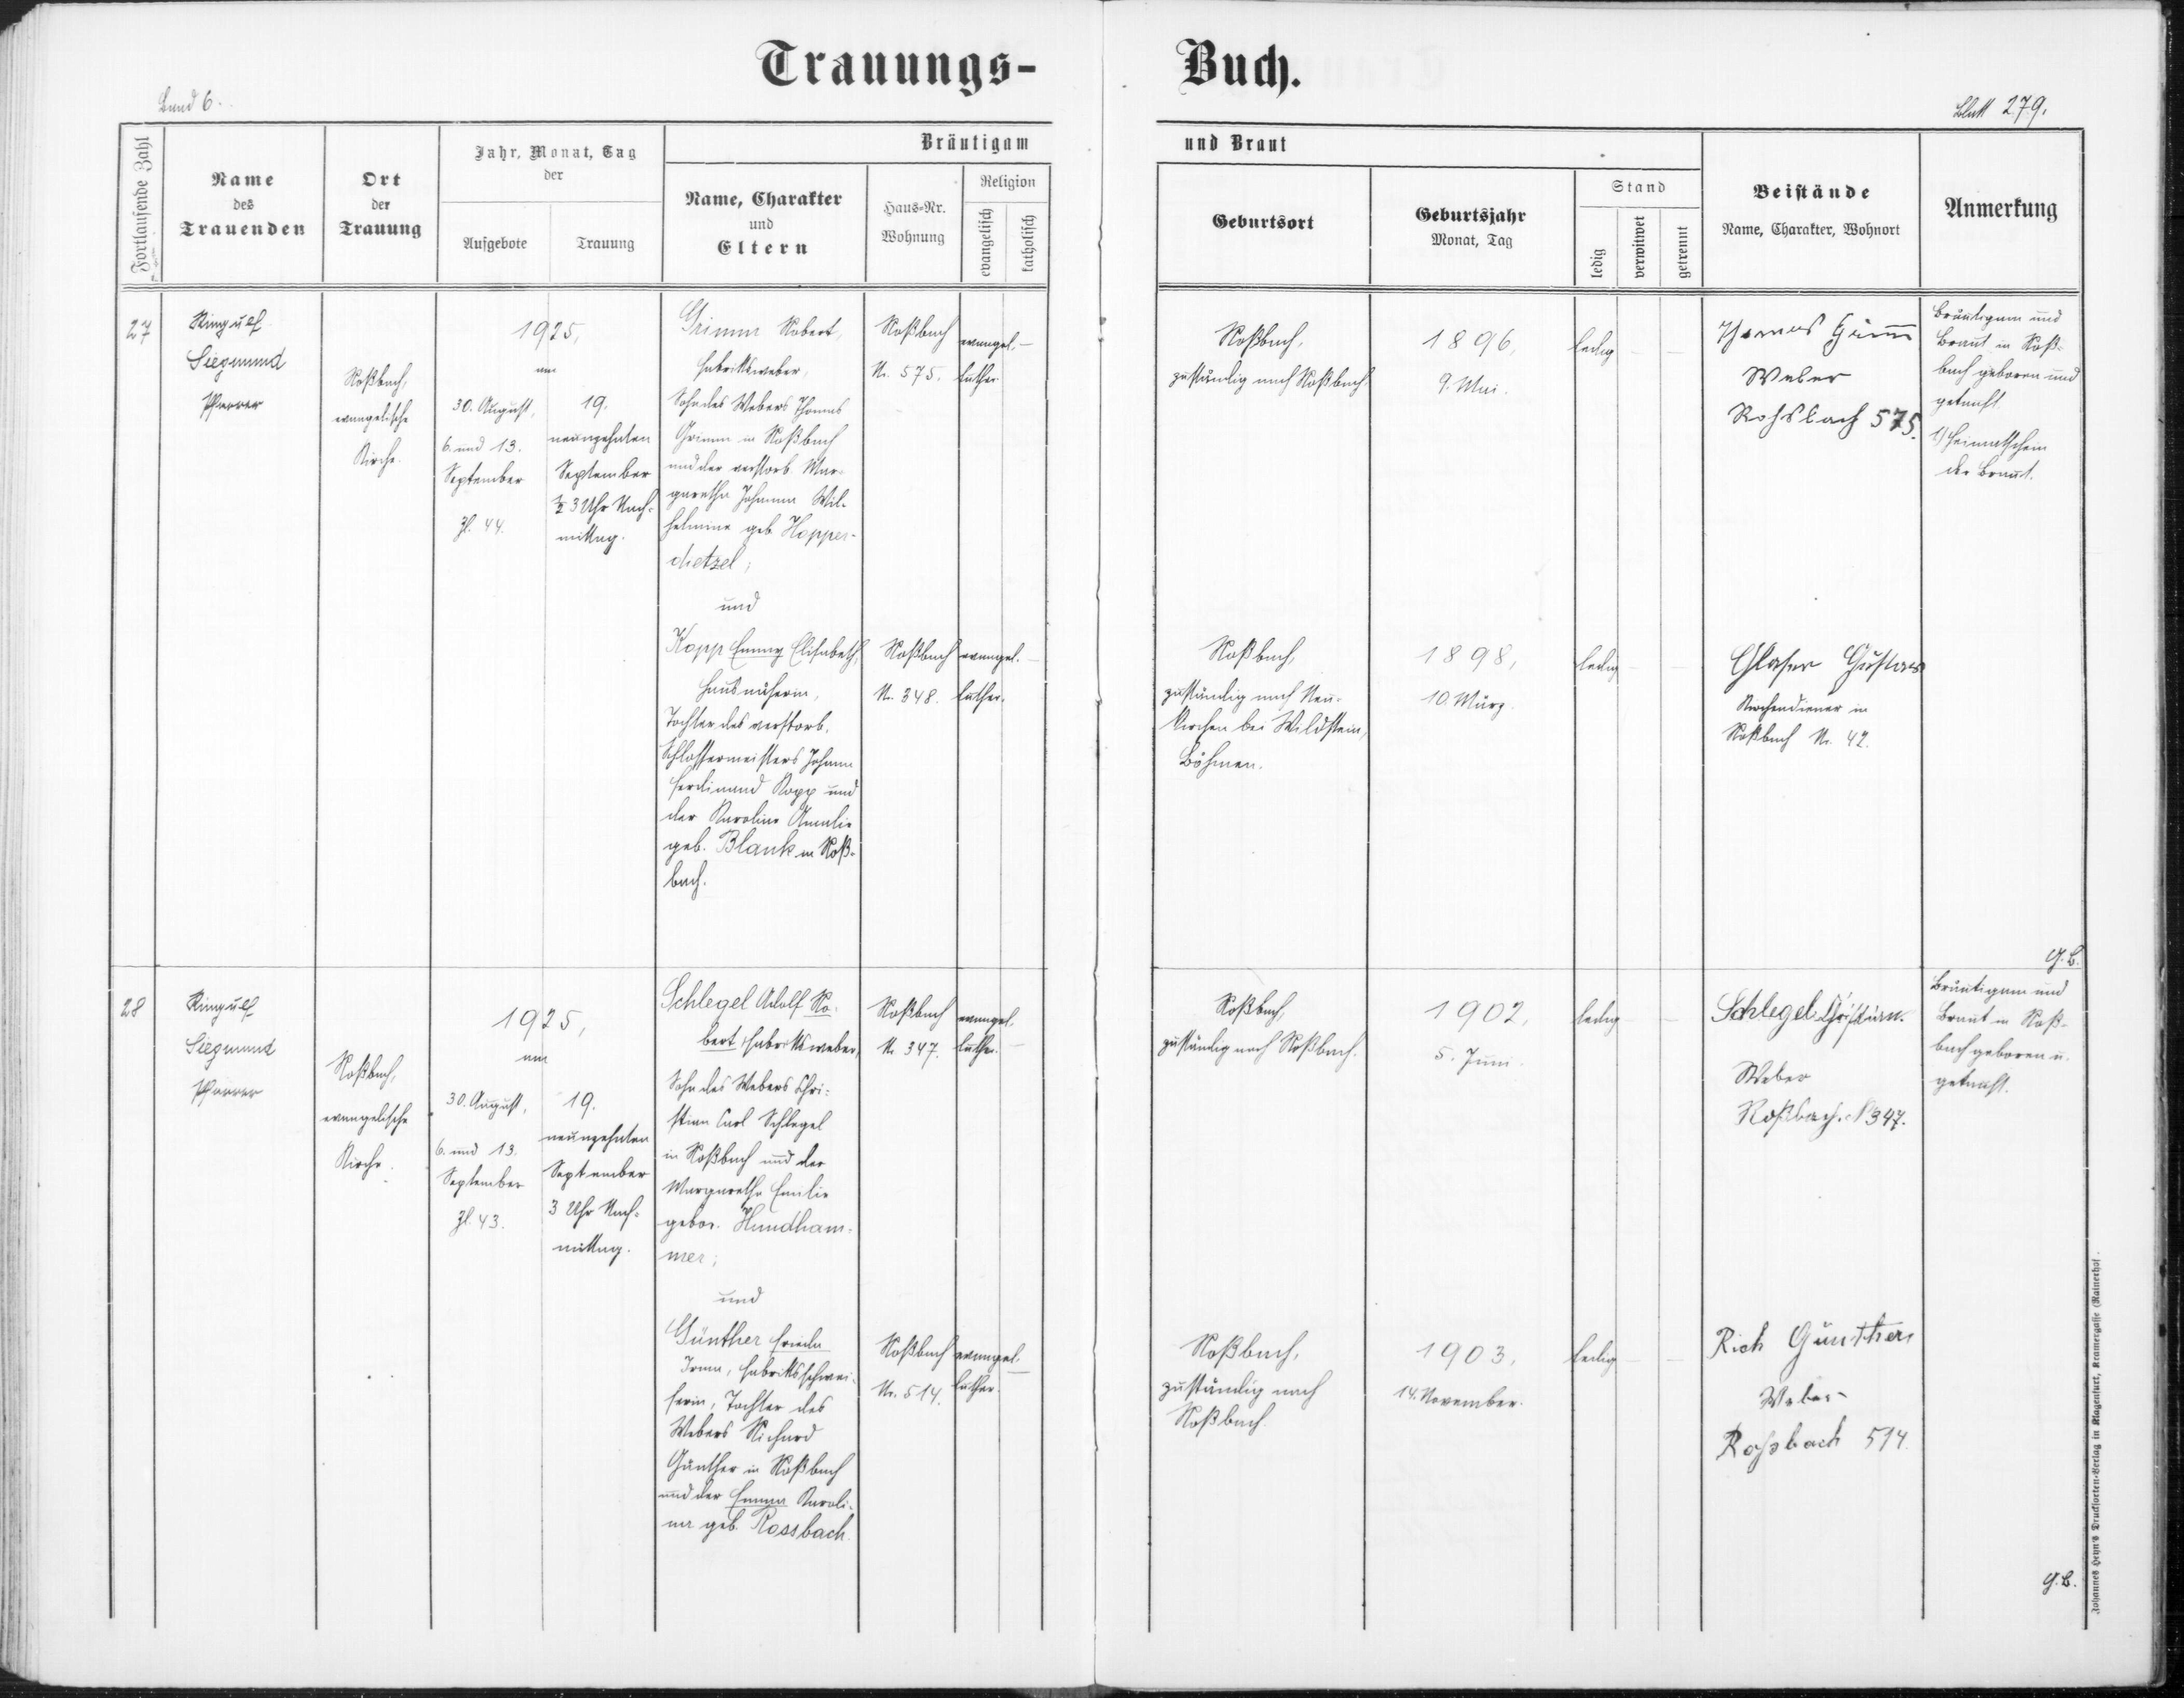 Trauungs-
Buch.
Band 6.
Blatt 279.
Fortlaufende Zahl
Name
des
Trauenden
Ort
der
Trauung
Jahr, Monat, Tag
der
Aufgebote
Trauung
Bräutigam
Name, Charakter
und
Eltern
Haus-Nr.
Wohnung
Religion
evangelisch
katholisch
und Braut
Geburtsort
Geburtsjahr
Monat, Tag
Stand
ledig
verwitwet
getrennt
Beistände
Name, Charakter, Wohnort
Anmerkung
27
Ringulf
Siegmund
Pfarrer
Roßbach,
evangelische
Kirche.
1925,
am
30. August,
6. und 13.
September
Zl. 44.
19.
neunzehnten
September
½ 3 Uhr Nach-
mittag.
Grimm Robert,
Fabriksweber,
Sohn des Webers Thomas
Grimm in Roßbach
und der verstorb. Mar-
garetha Johanna Wil-
helmine geb. Hopper-
dietzel;
und
Kopp Emmy Elisabeth,
Hausnäherin,
Tochter des verstorb.
Schlossermeisters Johann
Ferdinand Kopp und
der Karoline Amalie
geb. Blank in Roß-
bach.
Roßbach
Nr. 575.
evangel.
luther.
Roßbach
Nr. 348.
evangel.
luther.
Roßbach,
zuständig nach Roßbach.
1896,
9. Mai.
ledig
Thomas Grimm
Weber
Rohsbach 575.
Bräutigam und
Braut in Roß-
bach geboren und
getauft.
1) Heimatschein
der Braut.
Roßbach,
zuständig nach Neu-
kirchen bei Wildstein,
Böhmen.
1898,
10. März.
ledig
Glaser Gustav
Kirchendiener in
Roßbach Nr. 42.
G.B.
28
Ringulf
Siegmund
Pfarrer
Roßbach,
evangelische
Kirche.
1925,
am
30. August,
6. und 13.
September
Zl. 43.
19.
neunzehnten
September
3 Uhr Nach-
mittag.
Schlegel Adolf Ro-
bert, Fabriksweber,
Sohn des Webers Chri-
stian Carl Schlegel
in Roßbach und der
Margaretha Emilie
gebor. Hundham-
mer;
und
Günther Frieda
Irma, Fabriksschwei-
ferin, Tochter des
Webers Richard
Günther in Roßbach
und der Emma Karoli-
na geb. Rossbach.
Roßbach
Nr. 347.
evangel.
luther.
Roßbach
Nr. 514.
evangel.
luther.
Roßbach,
zuständig nach Roßbach.
1902,
5. Juni.
ledig
Schlegel Christian.
Weber
Roßbach. N 347.
Bräutigam und
Braut in Roß-
bach geboren u.
getauft.
Roßbach,
zuständig nach
Roßbach.
1903,
14. November.
ledig
Rich Günther
Weber
Roßbach 514.
G.B.
Johannes Heyn's Drucksorten-Verlag in Klagenfurt, Kramergasse (Rainerhof).